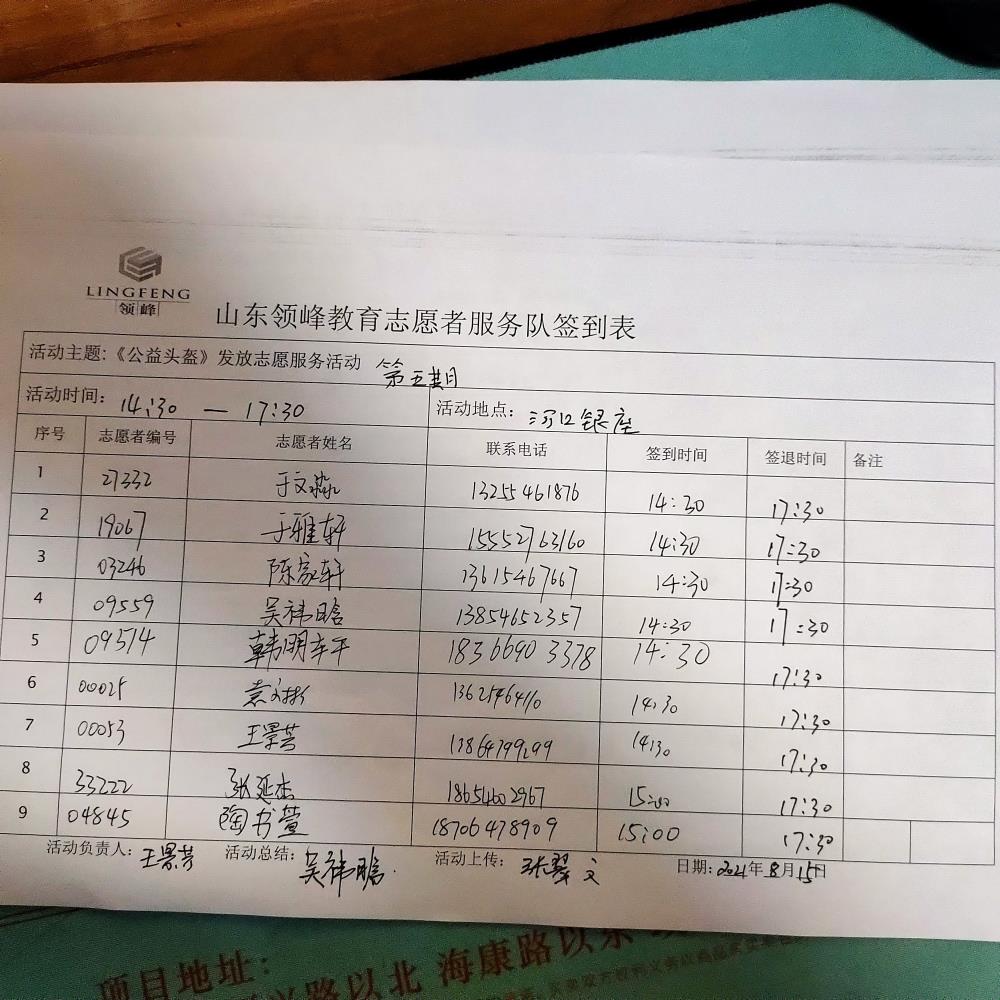 LINGFENG
领峰
山东领峰教育志愿者服务队签到表
活动主题:《公益头盔》发放志愿服务活动 第五期
活动时间: 14:30 — 17:30 活动地点: 河口银座
序号 志愿者编号 志愿者姓名 联系电话 签到时间 签退时间 备注
1 27332 于文淼 13255461876 14:30 17:30
2 19067 于雅轩 15552763160 14:30 17:30
3 03246 陈家轩 13615467667 14:30 17:30
4 09559 吴祎晗 13854652357 14:30 17:30
5 09574 韩明车干 18366903378 14:30 17:30
6 00025 13625464110 14:30 17:30
7 00053 王景芸 14:30 17:30
8 33222 张延杰 18654602967 15:00 17:30
9 04845 陶书萱 18706478909 15:00 17:30
活动负责人: 王景芸 活动总结: 吴祎晗. 活动上传: 张翠文 日期: 2021年8月15日
项目地址:
路以北 海康路以东